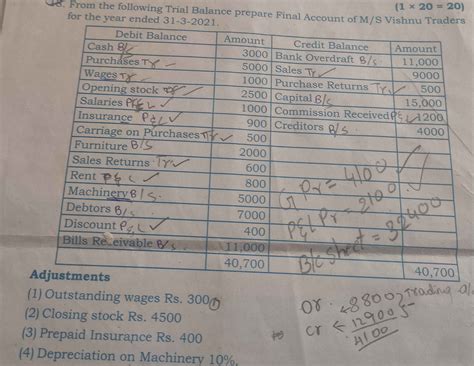 18. From the following Trial Balance prepare Final Account of M/S Vishnu Traders (1 × 20 = 20)
for the year ended 31-3-2021.
Debit Balance Amount Credit Balance Amount
Cash B/s 3000 Bank Overdraft B/s 11,000
Purchases Tr 5000 Sales Tr 9000
Wages Tr 1000 Purchase Returns Tr 500
Opening stock 2500 Capital B/s 15,000
Salaries P&L 1000 Commission Received P&L 1200
Insurance P&L 900 Creditors B/s 4000
Carriage on Purchases Tr 500
Furniture B/s 2000
Sales Returns Tr 600
Rent P&L 800
Machinery B/s 5000
Debtors B/s 7000
Discount P&L 400
Bills Receivable B/s 11,000
40,700 40,700
G Pr = 4100
P&L Pr = 2100
B/c Sheet = 32400
Adjustments
(1) Outstanding wages Rs. 300
(2) Closing stock Rs. 4500
(3) Prepaid Insurance Rs. 400
(4) Depreciation on Machinery 10%.
Dr. 8800 Trading
Cr 12900
4100